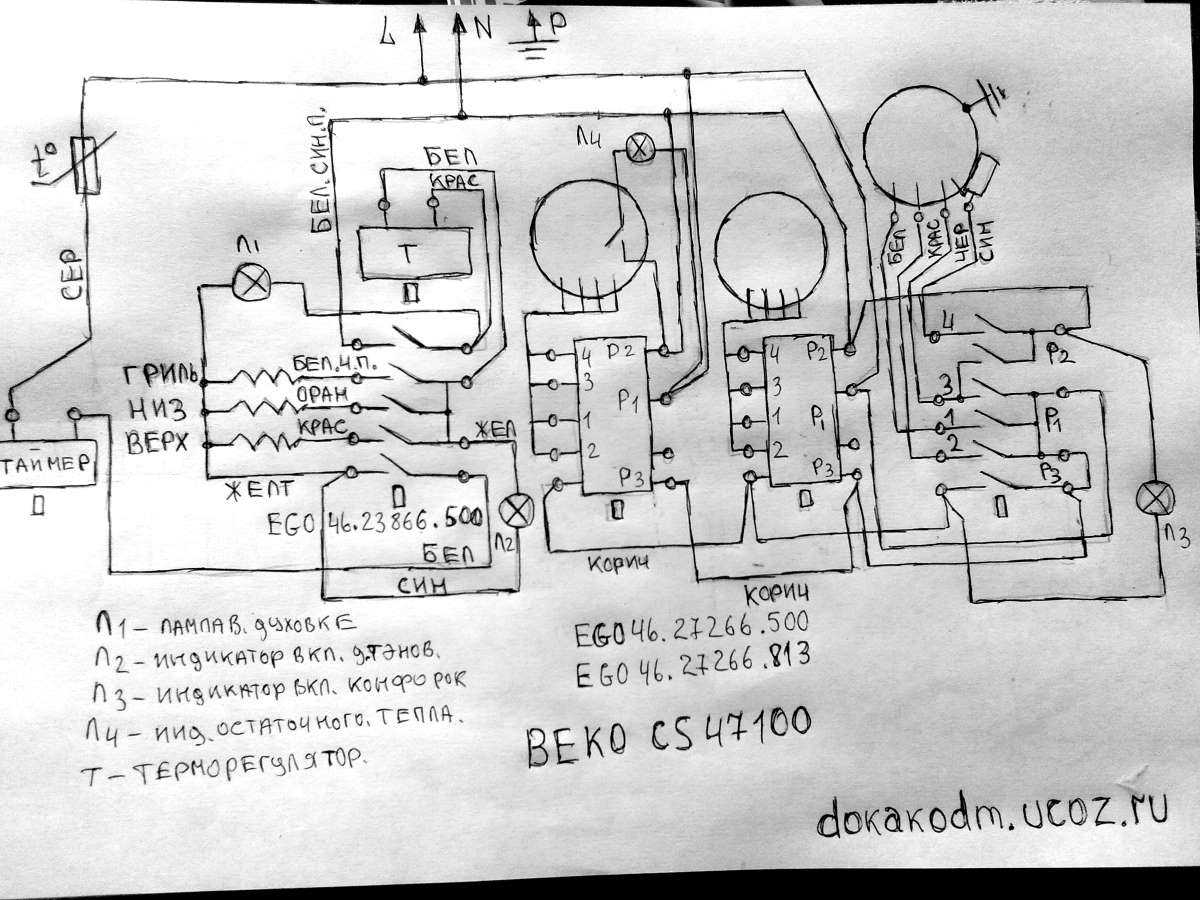 L N P
t°
СЕР
БЕЛ. СИН. П.
БЕЛ
КРАС
Т
Л1
Л4
БЕЛ
КРАС
ЧЕР
СИН
ГРИЛЬ
БЕЛ.Ч.П.
НИЗ
ОРАН
ВЕРХ
КРАС
ЖЕЛ
ТАЙМЕР
ЖЕЛТ
EGO 46.23866.500
Л2
БЕЛ
СИН
4 P2
3
P1
1
2
P3
4 P2
3
P1
1
2
P3
4
P2
3
1 P1
2
P3
Л3
КОРИЧ
КОРИЧ
Л1 – ЛАМПА В. ДУХОВКЕ
Л2 – ИНДИКАТОР ВКЛ. Д.ТЭНОВ.
Л3 – ИНДИКАТОР ВКЛ. КОНФОРОК
Л4 – ИНД. ОСТАТОЧНОГО. ТЕПЛА.
Т – ТЕРМОРЕГУЛЯТОР.
EGO 46.27266.500
EGO 46.27266.813
BEKO CS 47100
dokakodm.ucoz.ru